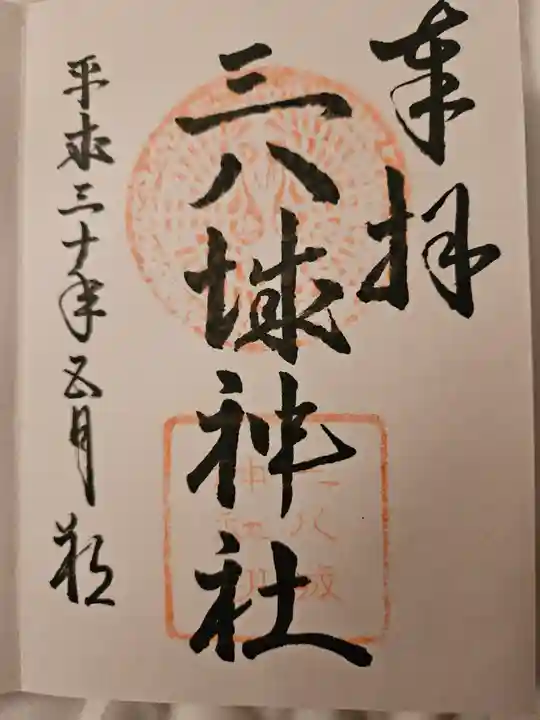 奉拝
三八城神社
平成三十年五月
三八城
神社